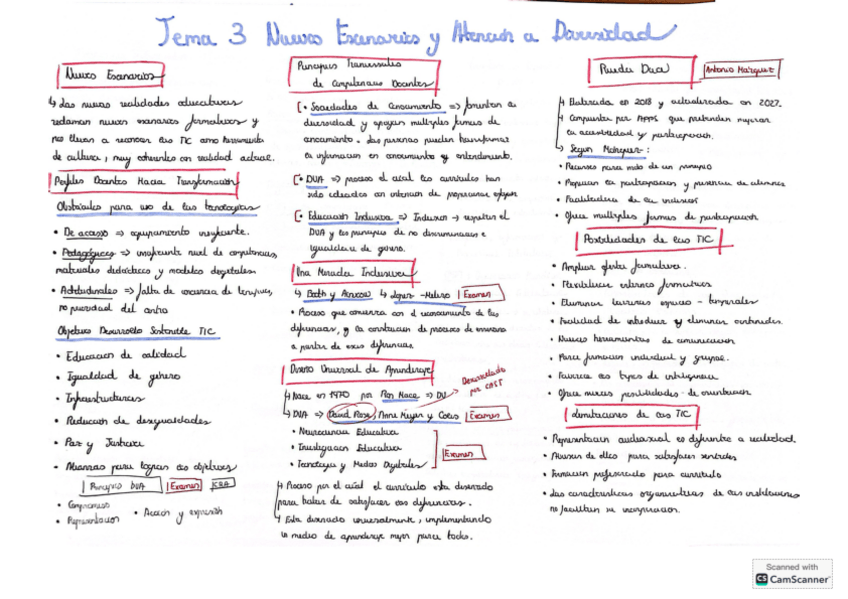 Tema 3 Nuevos Escenarios y Atención a Diversidad
Nuevos Escenarios
↳ Las nuevas realidades educativas
reclaman nuevos escenarios formativos y
nos llevan a reconocer las TIC como herramienta
de cultura, muy coherentes con realidad actual.
Perfiles Docentes Hacia Transformación
Obstáculos para uso de las tecnologías
• De acceso => equipamiento insuficiente.
• Pedagógicos => insuficiente nivel de competencias,
materiales didácticos y modelos digitales.
• Actitudinales => falta de
no prioridad del centro
Objetivos Desarrollo Sostenible TIC
• Educación de calidad
• Igualdad de género
• Infraestructuras
• Reducción de desigualdades
• Paz y Justicia
• Alianzas para lograr los objetivos
Principios DUA Examen
• Compromiso
• Representación • Acción y expresión
Principios Transversales
de Competencias Docentes
• Sociedades de Conocimiento => fomentan la
diversidad y apoyan múltiples formas de
conocimiento. Las personas pueden transformar
la información en conocimiento y entendimiento.
• DUA => proceso el cual los currículos han
sido ideados con intención de proporcionar
• Educación Inclusiva => Inclusión → respetar el
DUA y los principios de no discriminación e
igualdad de género.
Una Mirada Inclusiva
↳ Booth y Ainscow ↳ López-Melero Examen
• Proceso que comienza con el reconocimiento de las
diferencias, y la construcción de procesos de enseñanza
a partir de esas diferencias.
Diseño Universal de Aprendizaje
↳ Nace en 1970 por Ron Mace => DU
Desarrollado
por CAST
↳ DUA => David Rose, Anne Meyer y Cols Examen
• Neurociencia Educativa
• Investigación Educativa
• Tecnología y Medios Digitales
Examen
↳ Proceso por el cual el currículo está diseñado
para tratar de satisfacer las diferencias.
↳ Está diseñado universalmente, implementando
un medio de aprendizaje mejor para todos.
Rueda DUA Antonio Márquez
↳ Elaborada en 2018 y actualizada en 2021.
↳ Compuesta por Apps que pretenden mejorar
la accesibilidad y participación.
↳ Según Márquez:
• Recursos para más de un principio
• Propician la participación y presencia de alumnos
• Facilitadora de la inclusión
• Ofrece múltiples formas de participación
Posibilidades de las TIC
• Ampliar oferta formativa.
• Flexibilizar entornos formativos
• Eliminar barreras espacio-temporales
• Facilidad de introducir y eliminar contenidos.
• Nuevas herramientas de comunicación
• Para formación individual y grupal.
• Favorece los tipos de inteligencia
• Ofrece nuevas posibilidades de orientación
Limitaciones de las TIC
• Representación audiovisual es diferente a realidad.
• Abusan de ellos para satisfacer
• Formación para currículo
• Las características organizativas de las instituciones
no facilitan su incorporación.
Scanned with
CS CamScanner